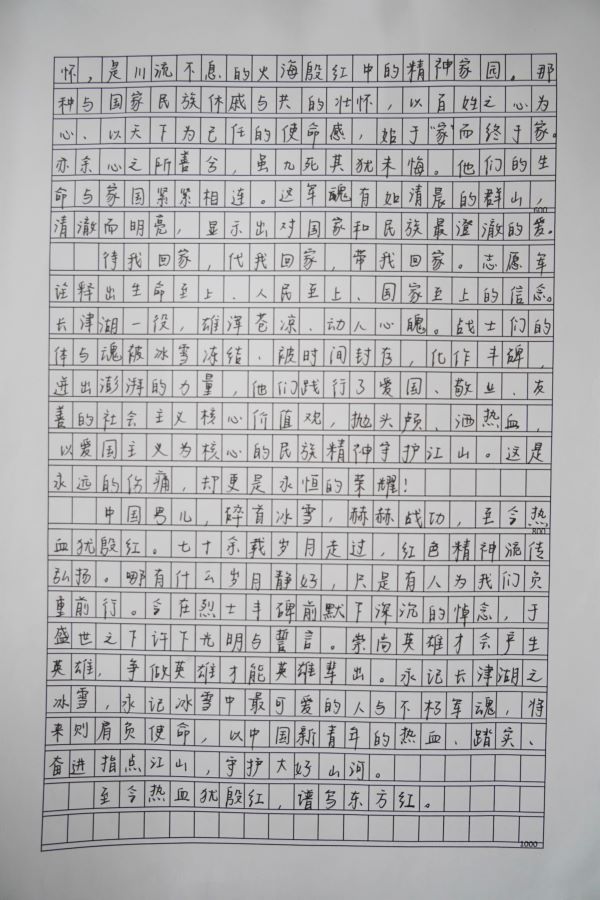 怀，是川流不息的火海殷红中的精神家园。那
种与国家民族休戚与共的壮怀，以百姓之心为
心、以天下为己任的使命感，始于“家”而终于家。
亦余心之所善兮，虽九死其犹未悔。他们的生
命与家国紧紧相连。这军魂有如清晨的群山，
600
清澈而明亮，显示出对国家和民族最澄澈的爱。
待我回家，代我回家，带我回家。志愿军
诠释出生命至上、人民至上、国家至上的信念。
长津湖一役，雄浑苍凉、动人心魄。战士们的
体与魂被冰雪冻结、被时间封存，化作丰碑，
迸出澎湃的力量，他们践行了爱国、敬业、友
善的社会主义核心价值观，抛头颅、洒热血，
以爱国主义为核心的民族精神守护江山。这是
永远的伤痛，却更是永恒的荣耀！
中国男儿，碎首冰雪，赫赫战功，至今热
800
血犹殷红。七十余载岁月走过，红色精神流传
弘扬。哪有什么岁月静好，只是有人为我们负
重前行。今在烈士丰碑前默下深沉的悼念，于
盛世之下许下光明与誓言。崇尚英雄才会产生
英雄，争做英雄才能英雄辈出。永记长津湖之
冰雪，永记冰雪中最可爱的人与不朽军魂，将
来则肩负使命，以中国新青年的热血、踏实、
奋进指点江山，守护大好山河。
至今热血犹殷红，谱写东方红。
1000